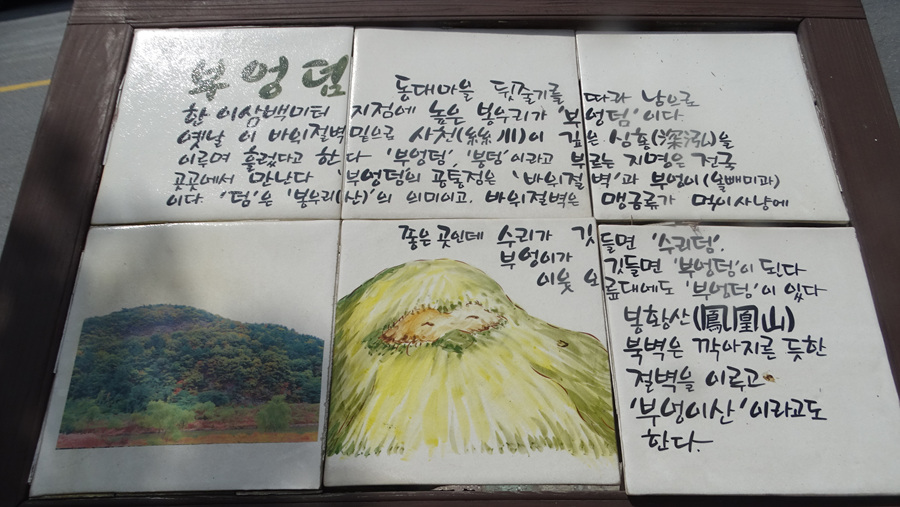 부엉덤
동대마을 뒷줄기를 따라 남으로
한 이삼백미터 지점에 높은 봉우리가 '부엉덤'이다
옛날 이 바위절벽 밑으로 사천(絲川)이 깊은 심홍(深泓)을
이루며 흘렀다고 한다 '부엉덤', '부덤'이라고 부르는 지명은 전국
곳곳에서 만난다 '부엉덤의 공통점은 '바위절벽'과 부엉이(올빼미과)
이다 '덤'은 '봉우리(산)'의 의미이고, 바위절벽은 맹금류가 먹이사냥에
좋은 곳인데 수리가 깃들면 '수리덤',
부엉이가 깃들면 '부엉덤'이 된다
이웃 오룡대에도 '부엉덤'이 있다
봉황산(鳳凰山)
북벽은 깍아지른 듯한
절벽을 이루고
'부엉이산'이라고도
한다.